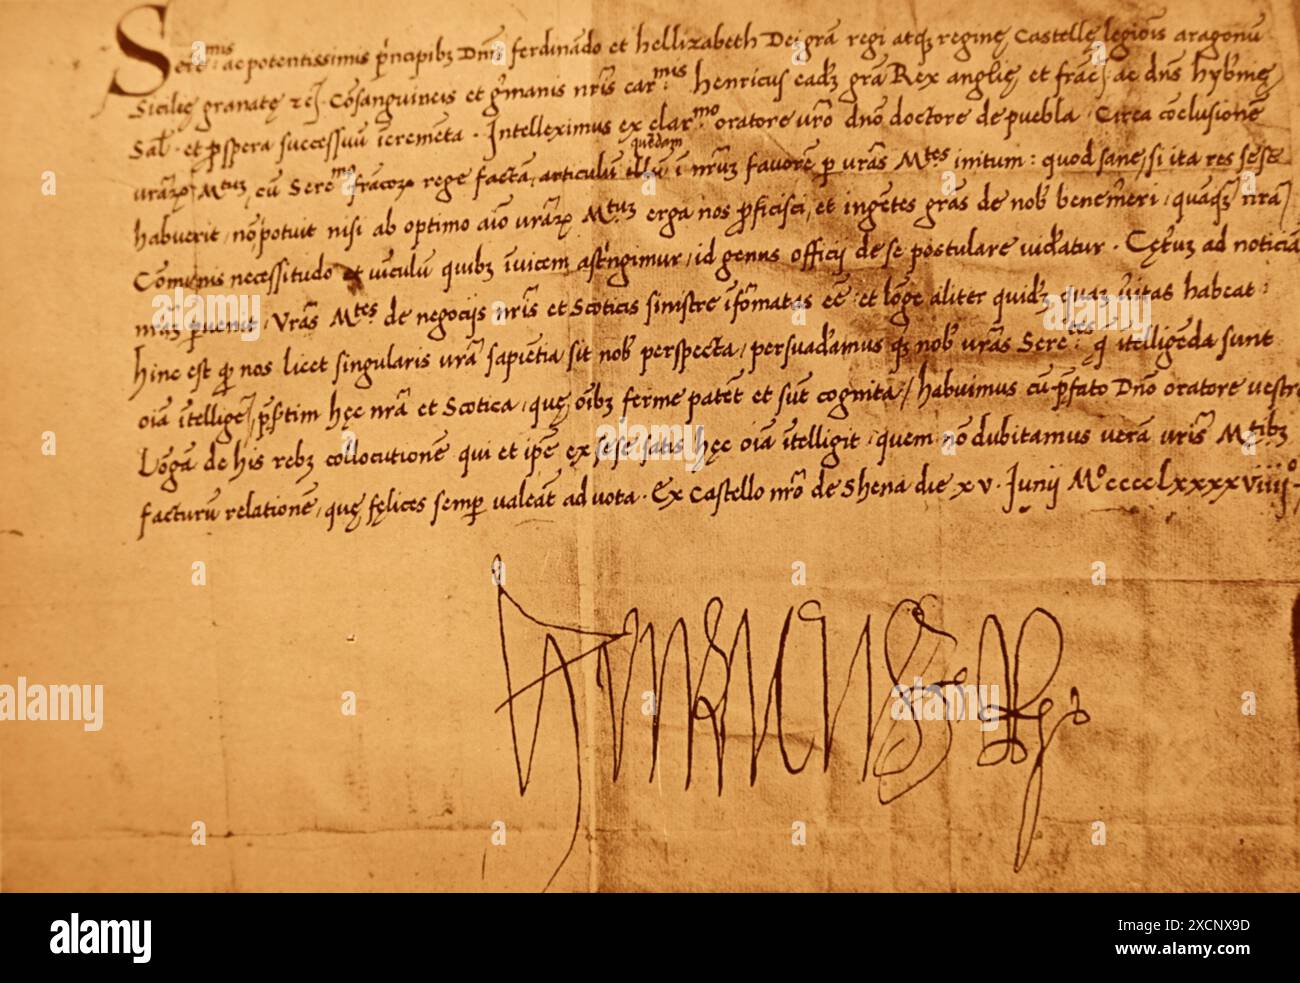 Sere.mis ac potentissimis p̃ncipibꝫ Dnis ferdinãdo et hellizabeth Dei grã regi atqꝫ reginę Castellę legiõis aragonũ
Sicilię granatę ⁊cꝭ. Cõsanguineis et g̃manis nr̃is car.mis henricus eadꝫ grã Rex anglię et frãcꝭ ac dns hybñię
Salꝭ. et p̱spera successuũ icremẽta. Intelleximus ex clar.mo oratore vr̃o dño doctore de puebla. Circa cõclusionẽ
vrãꝝ Mtuꝫ cũ Sere.mo frãcoꝝ rege factã, articulũ quẽdam illũ ĩ nrũꝫ favorẽ p̱ vrãs Mtes initum: quod sane, si ita res sese
habuerit, nõ potuit nisi ab optimo aĩo vrãꝝ Mtuꝫ erga nos p̱ficisci, et ingẽtes grãs de nobꝭ benem̃eri, quãqꝫ nrã
Cõmunis necessitudo et vĩculũ quibꝫ ĩvicem astrĩgimur, id genus officij de se postulare vidꝫatur. Cętuꝫ ad noticiã
nrãꝫ p̱venit, vrãs Mtes de negocijs nr̃is et Scoticis sinistre ĩformatas eẽ et lõge aliter quidꝫ quaꝫ vĩtas habeat:
hinc est qꝫ nos licet singularis vrã sapiẽtia sit nobꝭ perspecta, persuadꝫamus qꝫ nobꝭ vrãs Sere.tes q̃ ĩtelligẽda sunt
oĩa ĩtelligeꝭ, p̃sertim hęc nrã et Scotica, quę oĩbꝫ ferme patẽt et sũt cognita, habuimus cũ p̃fato Dño oratore vestro
Lõgã de his rebꝫ collocutionẽ qui et ip̃e ex sese satis hęc oĩa ĩtelligit, quem nõ dubitamus verã vr̃is Mtibꝫ
facturũ relationẽ, quę fęlices semp̱ valeãt ad vota. Ex Castello nr̃o de Shena die xv. Junij Mº ccccLxxxxviiijº.
alamy
Image ID: 2XCNX9D
www.alamy.com